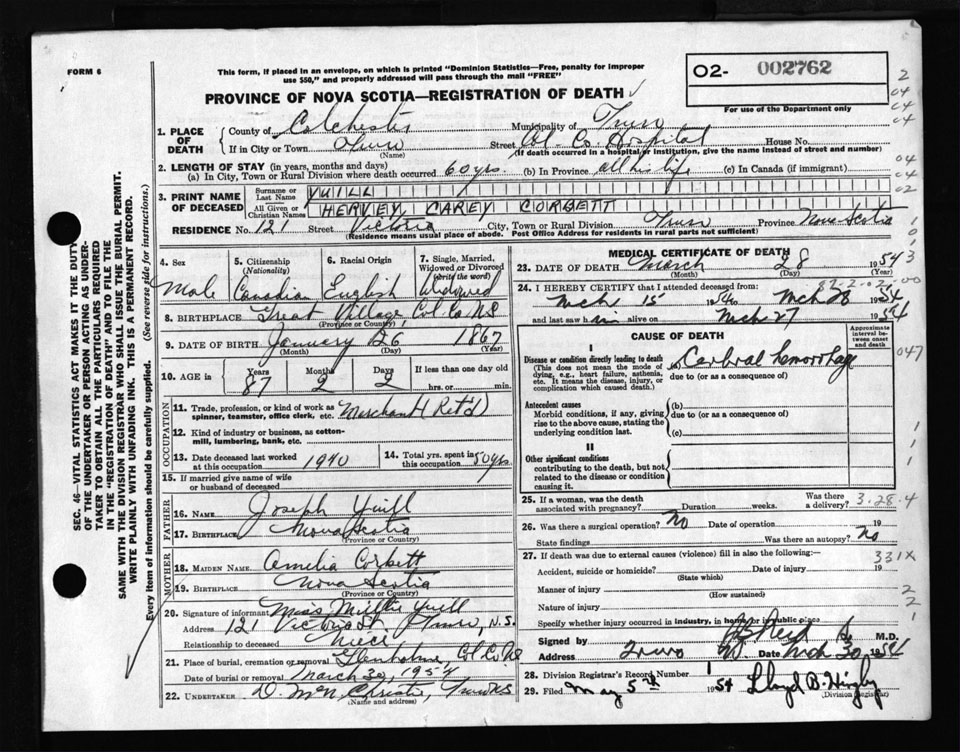 FORM 6
This form, if placed in an envelope, on which is printed "Dominion Statistics—Free, penalty for improper
use $50," and properly addressed will pass through the mail "FREE"
O2- 002762
For use of the Department only
PROVINCE OF NOVA SCOTIA—REGISTRATION OF DEATH
1. PLACE OF DEATH { County of Colchester Municipality of Truro
If in City or Town Truro Street Col. Co. Hospital House No.
(Name) (If death occurred in a hospital or institution, give the name instead of street and number)
2. LENGTH OF STAY (in years, months and days)
(a) In City, Town or Rural Division where death occurred 60 yrs. (b) In Province all his life (c) In Canada (if immigrant)
3. PRINT NAME OF DECEASED { Surname or Last Name YUILL
All Given or Christian Names HERVEY CAREY CORBETT
RESIDENCE No. 121 Street Victoria City, Town or Rural Division Truro Province Nova Scotia
(Residence means usual place of abode. Post Office Address for residents in rural parts not sufficient)
4. Sex Male
5. Citizenship (Nationality) Canadian
6. Racial Origin English
7. Single, Married, Widowed or Divorced (Write the word) Widowed
8. BIRTHPLACE Great Village Col. Co. NS
(Province or Country)
9. DATE OF BIRTH January 26 1867
(Month) (Day) (Year)
10. AGE in { Years 87 Months 2 Days 2 If less than one day
hrs. or min.
OCCUPATION
11. Trade, profession, or kind of work as
spinner, teamster, office clerk, etc. Merchant Ret'd
12. Kind of industry or business, as cotton-
mill, lumbering, bank, etc.
13. Date deceased last worked
at this occupation 1940
14. Total yrs. spent in
this occupation 50 yrs
15. If married give name of wife
or husband of deceased
FATHER
16. Name Joseph Yuill
17. BIRTHPLACE Nova Scotia
(Province or Country)
MOTHER
18. MAIDEN NAME Amelia Corbett
19. BIRTHPLACE Nova Scotia
(Province or Country)
20. Signature of informant Miss Millie Yuill
Address 121 Victoria St Truro, N.S.
Relationship to deceased Niece
21. Place of burial, cremation or removal Glenholme, Col Co NS
Date of burial or removal March 30, 1954
22. UNDERTAKER D. McN. Christie, Truro NS
(Name and address)
MEDICAL CERTIFICATE OF DEATH
23. DATE OF DEATH March 28 1954
(Month) (Day) (Year)
24. I HEREBY CERTIFY that I attended deceased from:
Mch 15 1954 to Mch 28 1954
and last saw him alive on Mch 27 1954
CAUSE OF DEATH
Approximate interval between onset and death
I
Disease or condition directly leading to death
(This does not mean the mode of dying, e.g., heart failure, asthenia, etc. It means the disease, injury, or complication which caused death.)
Cerbral hemorrhage
due to (or as a consequence of)
Antecedent causes
Morbid conditions, if any, giving rise to the above cause, stating the underlying condition last.
(b)
due to (or as a consequence of)
(c)
II
Other significant conditions
contributing to the death, but not related to the disease or condition causing it.
047
25. If a woman, was the death
associated with pregnancy? Duration weeks. Was there a delivery? 3.28.4
26. Was there a surgical operation? No Date of operation 19
State findings Was there an autopsy? No
27. If death was due to external causes (violence) fill in also the following:— 331X
Accident, suicide or homicide? Date of injury 19
(State which)
Manner of injury
(How sustained)
Nature of injury
Specify whether injury occurred in industry, in home, or in public place
Signed by M.D.
Address Truro NS. Date Mch 30 1954
28. Division Registrar's Record Number
29. Filed May 5th 1954 Lloyd B.
(Division Registrar)
SEC. 46—VITAL STATISTICS ACT MAKES IT THE DUTY
OF THE UNDERTAKER OR PERSON ACTING AS UNDER-
TAKER TO OBTAIN ALL THE PARTICULARS REQUIRED
IN THE "REGISTRATION OF DEATH" AND TO FILE THE
SAME WITH THE DIVISION REGISTRAR WHO SHALL ISSUE THE BURIAL PERMIT.
WRITE PLAINLY WITH UNFADING INK. THIS IS A PERMANENT RECORD.
Every item of information should be carefully supplied. (See reverse side for instructions.)